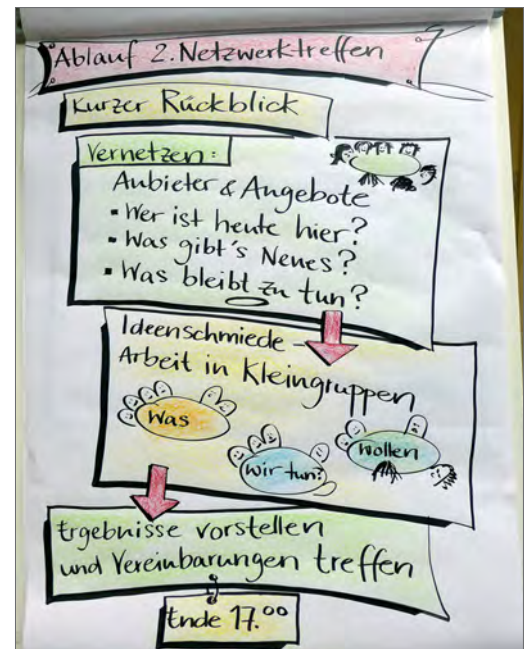 Ablauf 2. Netzwerktreffen
Kurzer Rückblick
Vernetzen:
Anbieter & Angebote
▪ Wer ist heute hier?
▪ Was gibt's Neues?
▪ Was bleibt zu tun?
Ideenschmiede –
Arbeit in Kleingruppen
Was
wollen
wir tun?
Ergebnisse vorstellen
und Vereinbarungen treffen
Ende 17.00